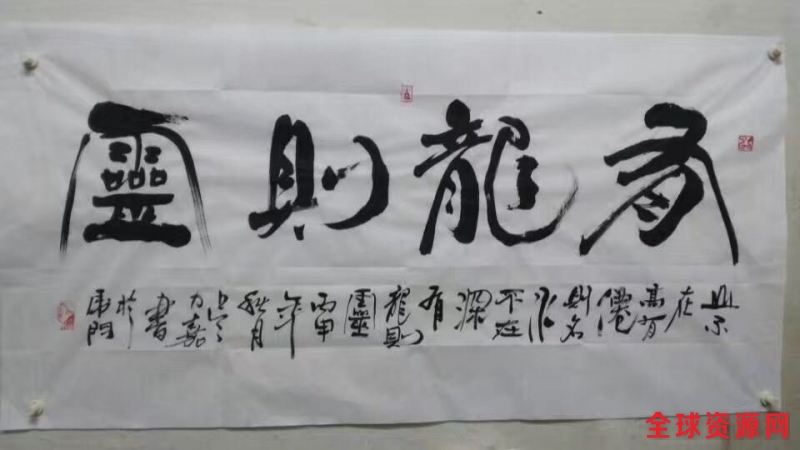 有龍則靈
山不
在
高有
僊
則名
水
不在
深
有
龍則
靈
丙申
年
秋月
力嘉
書
於
全球资源网